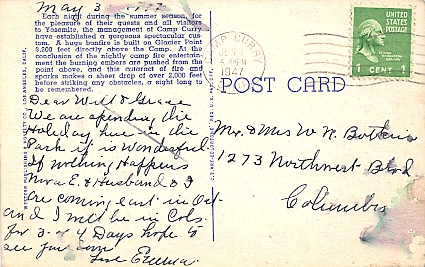 May 3
Each night during the summer season, for
the pleasure of their guests and all visitors
to Yosemite, the management of Camp Curry
have established a gorgeous spectacular cus-
tom. A huge bonfire is built on Glacier Point
3,200 feet directly above Camp. At the
conclusion of the nightly camp fire entertain-
ment the burning embers are pushed from the
point above, and this cataract of fire and
sparks makes a sheer drop of over 2,000 feet
before striking any obstacles, a sight long to
be remembered.
Dear Will & Grace
We are spending the
Holiday here in this
Park it is Wonderful
If nothing Happens
Nora E. & Husband & I
are coming east in Oct
and I will be in Cols
for 3 or 4 Days hope to
see you soon
Love Emma.
CURRY
1947
UNITED
STATES
POSTAGE
CENT 1
POST CARD
Mr. & Mrs W. N.
1273 Northwest Blvd
Columbus